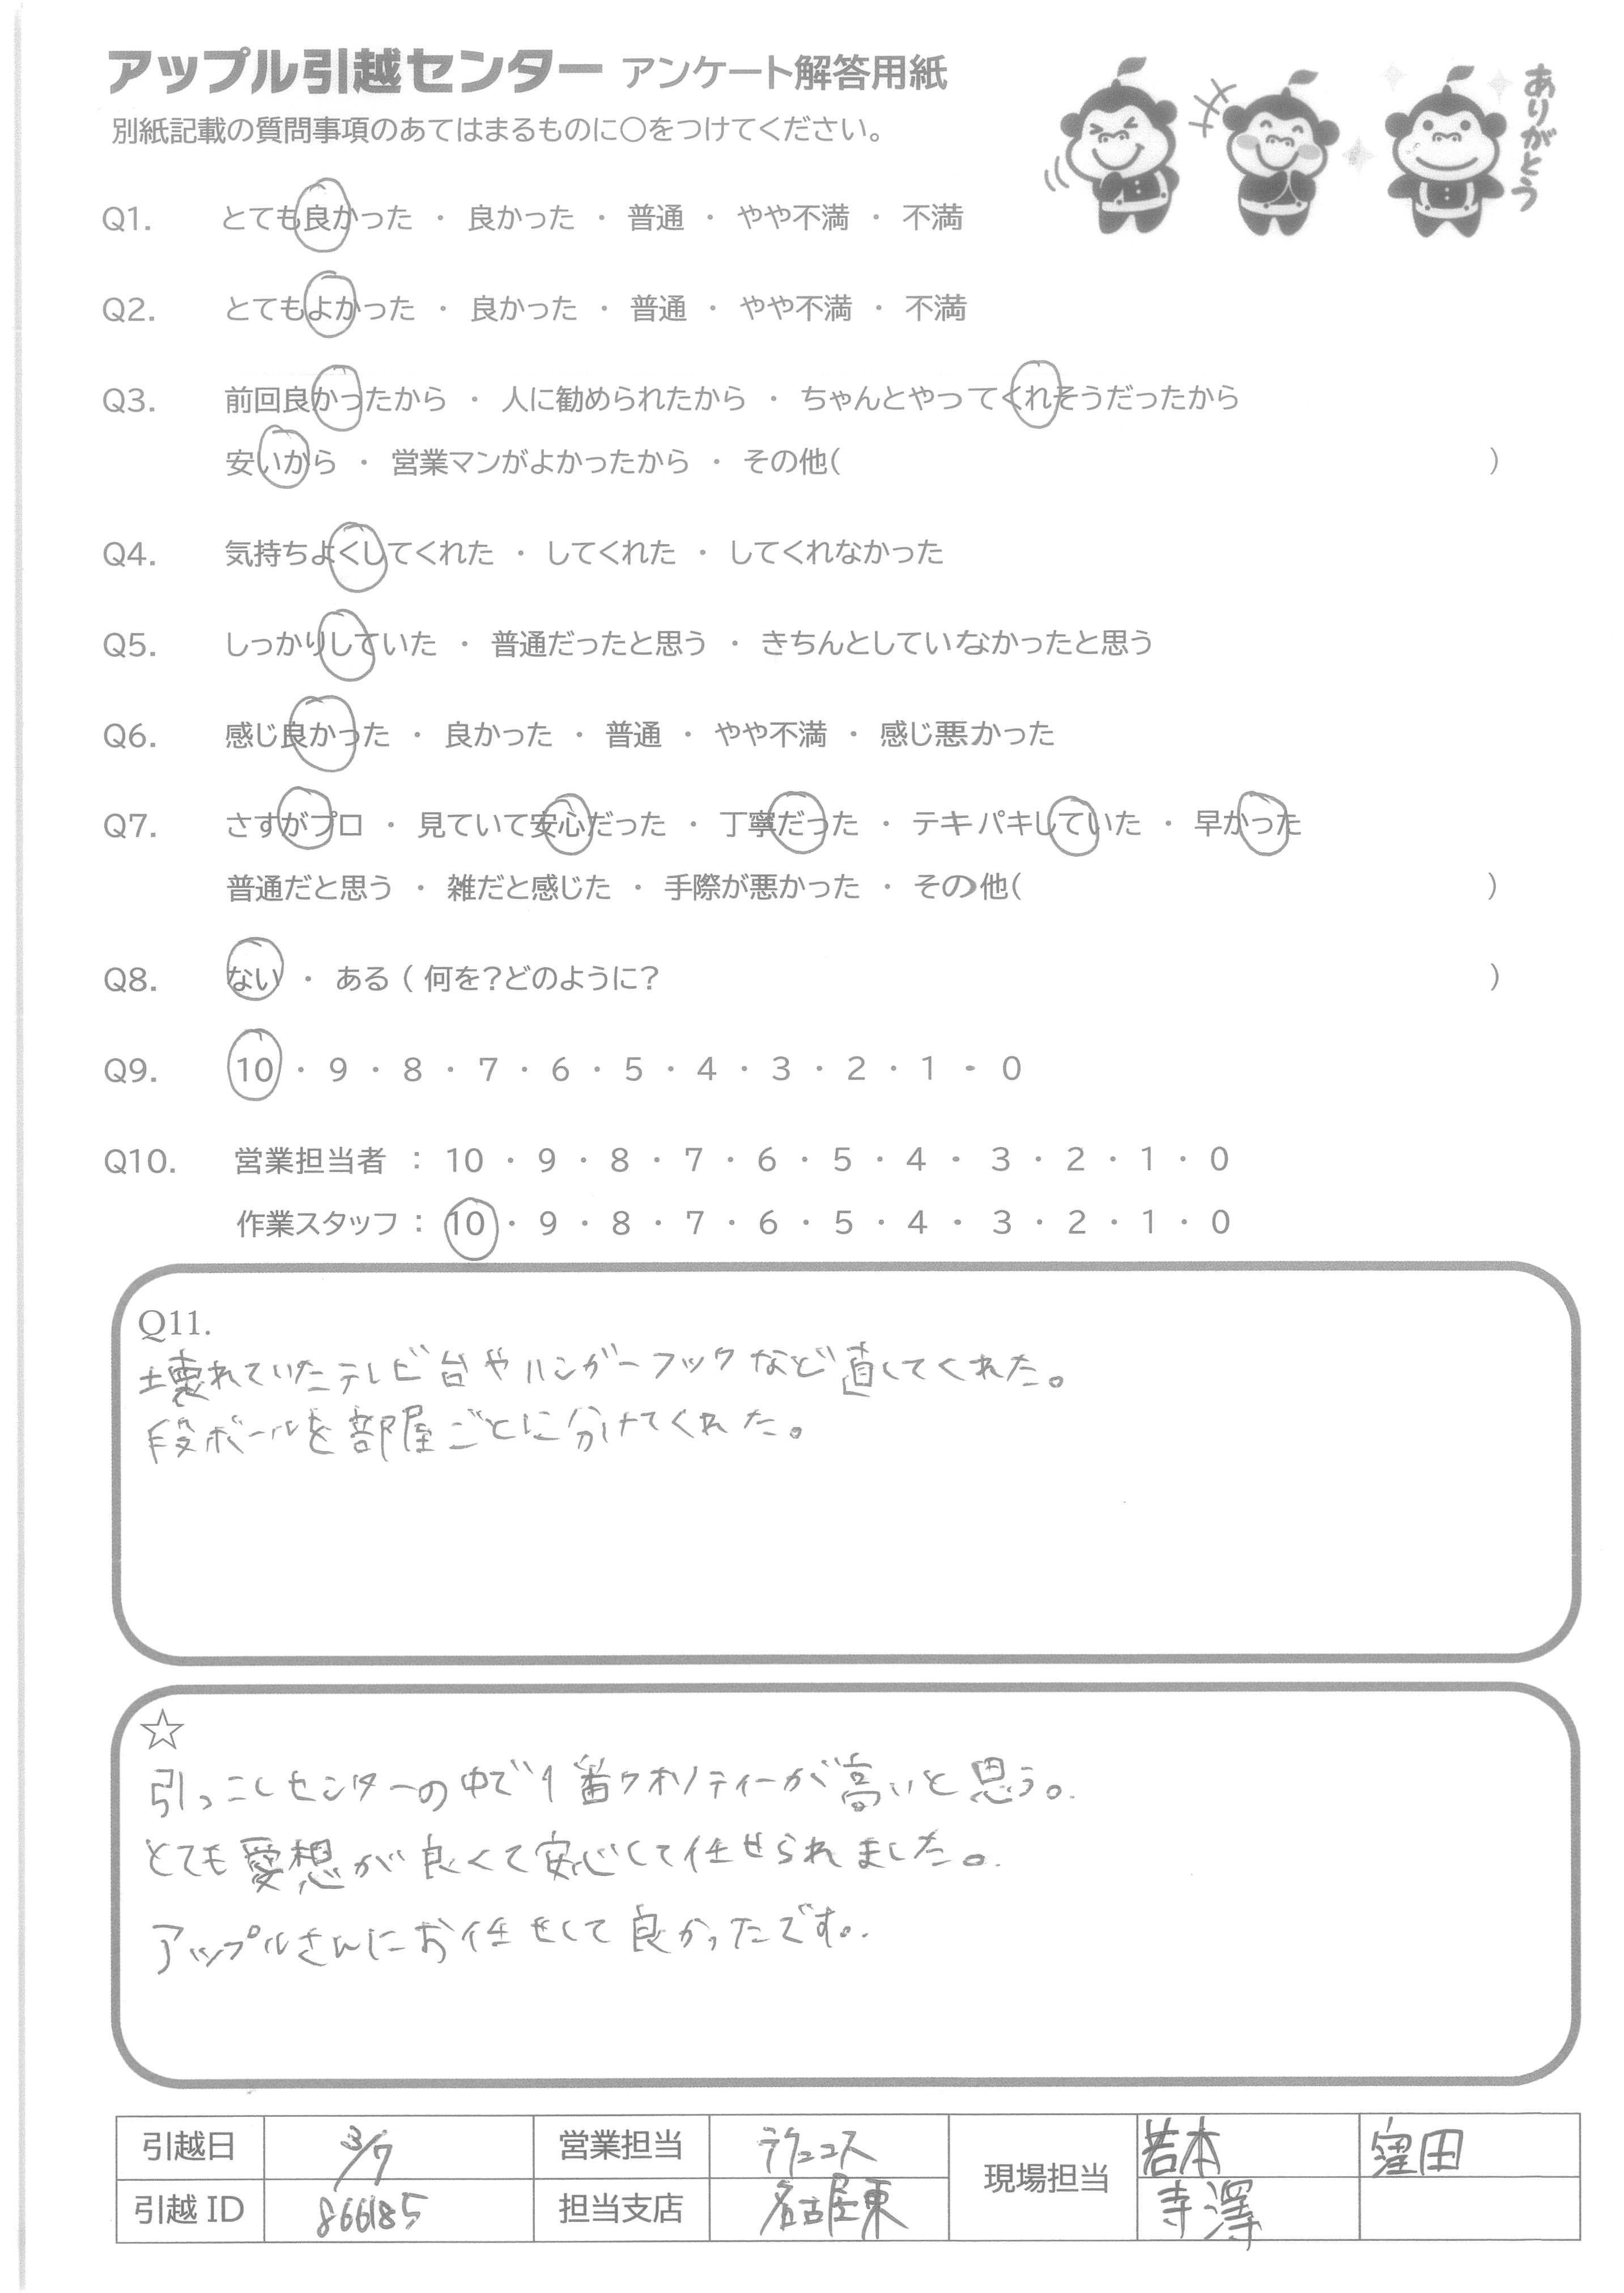 アップル引越センター アンケート解答用紙
別紙記載の質問事項のあてはまるものに○をつけてください。
ありがとう
Q1. とても良かった ・ 良かった ・ 普通 ・ やや不満 ・ 不満
Q2. とてもよかった ・ 良かった ・ 普通 ・ やや不満 ・ 不満
Q3. 前回良かったから ・ 人に勧められたから ・ ちゃんとやってくれそうだったから
安いから ・ 営業マンがよかったから ・ その他( )
Q4. 気持ちよくしてくれた ・ してくれた ・ してくれなかった
Q5. しっかりしていた ・ 普通だったと思う ・ きちんとしていなかったと思う
Q6. 感じ良かった ・ 良かった ・ 普通 ・ やや不満 ・ 感じ悪かった
Q7. さすがプロ ・ 見ていて安心だった ・ 丁寧だった ・ テキパキしていた ・ 早かった
普通だと思う ・ 雑だと感じた ・ 手際が悪かった ・ その他( )
Q8. ない ・ ある ( 何を?どのように? )
Q9. 10 ・ 9 ・ 8 ・ 7 ・ 6 ・ 5 ・ 4 ・ 3 ・ 2 ・ 1 ・ 0
Q10. 営業担当者 : 10 ・ 9 ・ 8 ・ 7 ・ 6 ・ 5 ・ 4 ・ 3 ・ 2 ・ 1 ・ 0
作業スタッフ : 10 ・ 9 ・ 8 ・ 7 ・ 6 ・ 5 ・ 4 ・ 3 ・ 2 ・ 1 ・ 0
Q11.
壊れていたテレビ台やハンガーフックなど直してくれた。
段ボールを部屋ごとに分けてくれた。
☆
引っこしセンターの中で1番クオリティーが高いと思う。
とても愛想が良くて安心して任せられました。
アップルさんにお任せして良かったです。
引越日 3/7 営業担当 現場担当 若本 窪田
引越ID 866185 担当支店 名古屋東 寺澤